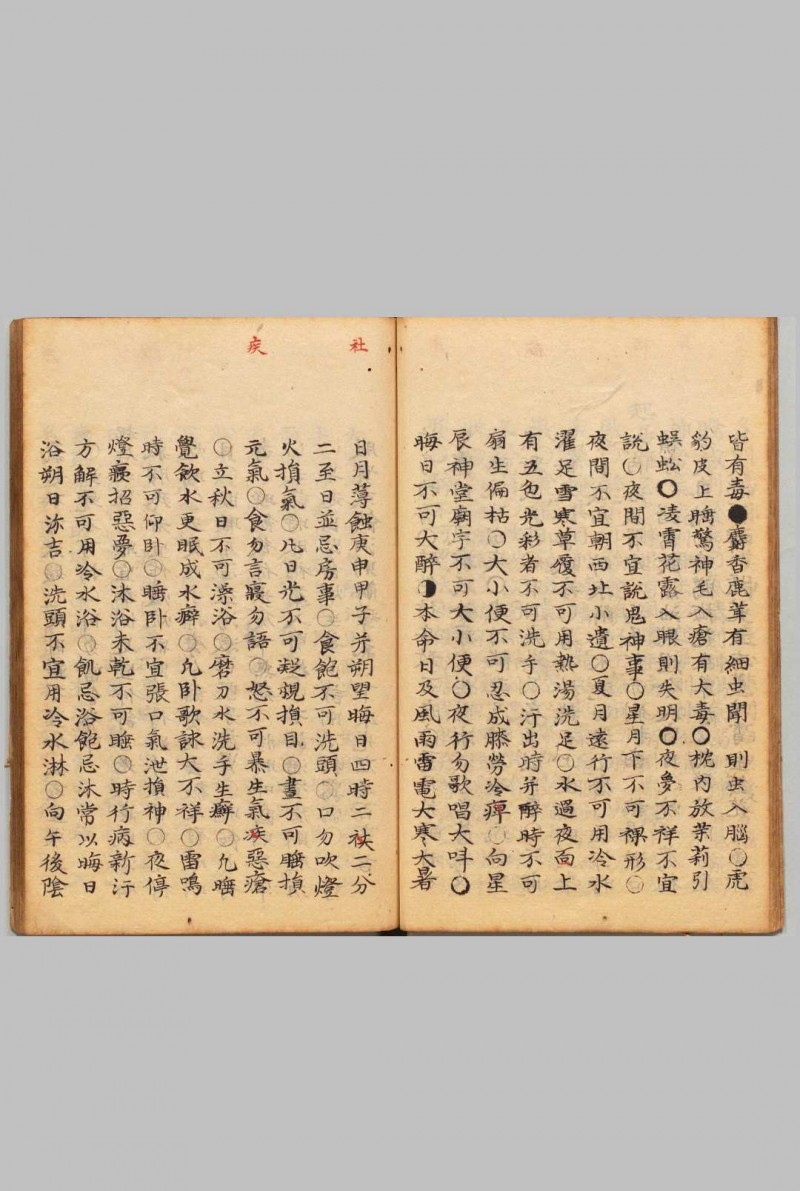 皆有毒●麝香鹿茸有細虫聞　則虫入腦○虎
豹皮上睡驚神毛入瘡有大毒○枕内放茉莉引
蜈蚣○凌霄花露入眼則失明○夜夢不祥不宜
說○夜間不宜說鬼神事○星月下不可裸形○
夜間不宜朝西北小遺○夏月遠行不可用冷水
濯足雪寒草履不可用熱湯洗足○水過夜面上
有五色光彩者不可洗手○汗出時并醉時不可
扇生偏枯○大小便不可忍成膝勞冷痺○向星
辰神堂廟宇不可大小便○夜行勿歌唱大呌○
晦日不可大醉◑本命日及風雨雷電大寒大暑
社
日月薄蝕庚申甲子并朔望晦日四時二袟二分
二至日並忌房事○食飽不可洗頭○口勿吹燈
火損氣○凡日光不可凝視損目○晝不可睡損
疾
元氣○食勿言寢勿語○怒不可暴生氣疾惡瘡
○立秋日不可澡浴○磨刀水洗手生癬○凡睡
覺飲水更眠成水癖○凡卧歌詠大不祥○雷鳴
時不可仰卧○睡卧不宜張口氣泄損神○夜停
燈寢招惡夢○沐浴未乾不可睡○時行病新汗
方解不可用冷水浴○飢忌浴飽忌沐常以晦日
浴朔日沐吉○洗頭不宜用冷水淋○向午後陰